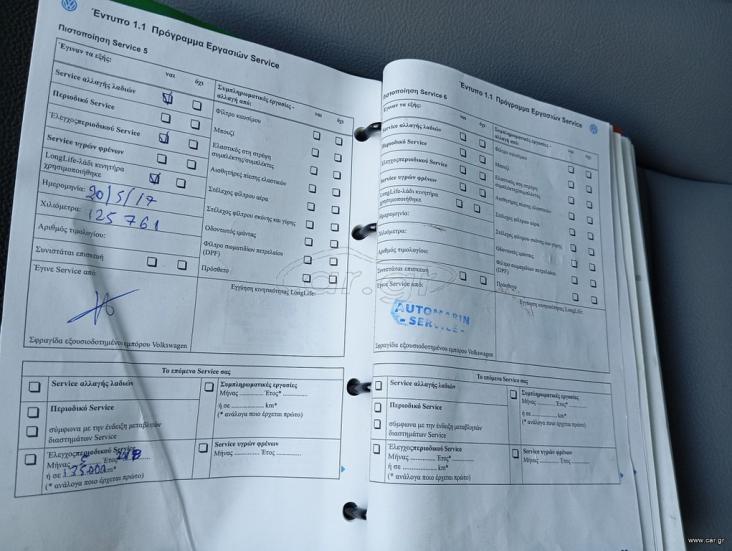 Έντυπο 1.1 Πρόγραμμα Εργασιών Service
Πιστοποίηση Service 5
Έγιναν τα εξής: ναι όχι
Service αλλαγής λαδιών
Περιοδικό Service
Έλεγχος περιοδικού Service
Service υγρών φρένων
LongLife-λάδι κινητήρα
χρησιμοποιήθηκε
Ημερομηνία: 20/5/17
Χιλιόμετρα: 125761
Αριθμός τιμολογίου:
Συνιστάται επισκευή
Έγινε Service από:
Σφραγίδα εξουσιοδοτημένου εμπόρου Volkswagen
Συμπληρωματικές εργασίες -
αλλαγή από: ναι όχι
Φίλτρο καυσίμου
Μπουζί
Ελαστικός στη στρέψη
συμπλέκτης/συμπλέκτες
Αισθητήρας πίεσης ελαστικών
Στέλεχος φίλτρου αέρα
Στέλεχος φίλτρου σκόνης και γύρης
Οδοντωτός ιμάντας
Φίλτρο σωματιδίων πετρελαίου
(DPF)
Πρόσθετο
Εγγύηση κινητικότητας LongLife:
Το επόμενο Service σας
Service αλλαγής λαδιών
Περιοδικό Service
σύμφωνα με την ένδειξη μεταβλητών
διαστημάτων Service
Έλεγχος περιοδικού Service
Μήνας Έτος
ή σε 135.000 km*
(* ανάλογα ποιο έρχεται πρώτο)
Συμπληρωματικές εργασίες
Μήνας ............ Έτος* ............
ή σε ............ km*
(* ανάλογα ποιο έρχεται πρώτο)
Service υγρών φρένων
Μήνας ............ Έτος ............
Έντυπο 1.1 Πρόγραμμα Εργασιών Service
Πιστοποίηση Service 6
Έγιναν τα εξής: ναι όχι
Service αλλαγής λαδιών
Περιοδικό Service
Έλεγχος περιοδικού Service
Service υγρών φρένων
LongLife-λάδι κινητήρα
χρησιμοποιήθηκε
Ημερομηνία:
Χιλιόμετρα:
Αριθμός τιμολογίου:
Συνιστάται επισκευή
Έγινε Service από:
AUTOMARIN
- SERVICE -
Σφραγίδα εξουσιοδοτημένου εμπόρου Volkswagen
Συμπληρωματικές εργασίες -
αλλαγή από: ναι όχι
Φίλτρο καυσίμου
Μπουζί
Ελαστικός στη στρέψη
συμπλέκτης/συμπλέκτες
Αισθητήρας πίεσης ελαστικών
Στέλεχος φίλτρου αέρα
Στέλεχος φίλτρου σκόνης και γύρης
Οδοντωτός ιμάντας
Φίλτρο σωματιδίων πετρελαίου
(DPF)
Πρόσθετο
Εγγύηση κινητικότητας LongLife:
Το επόμενο Service σας
Service αλλαγής λαδιών
Περιοδικό Service
σύμφωνα με την ένδειξη μεταβλητών
διαστημάτων Service
Έλεγχος περιοδικού Service
Μήνας ............ Έτος* ............
ή σε ............ km*
(* ανάλογα ποιο έρχεται πρώτο)
Συμπληρωματικές εργασίες
Μήνας ............ Έτος* ............
ή σε ............ km*
(* ανάλογα ποιο έρχεται πρώτο)
Service υγρών φρένων
Μήνας ............ Έτος ............
car.gr
www.car.gr